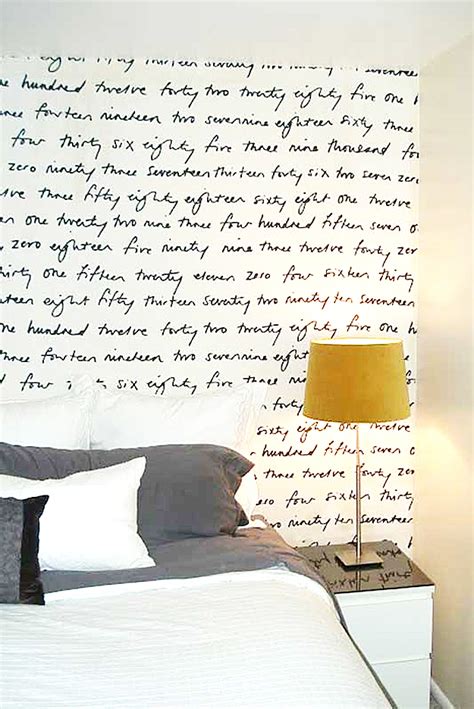 eight fifty thirteen seventy two thirteen seventeen
one hundred twelve forty two twenty eighty five one
three fourteen nineteen two sevennine eighteen sixty three
four thirty six eighty five three nine thousand fo
zero ninety three seventeen thirteen forty two seven zero
twelve three fifty eighty eight sixty eight one twelve
one twenty two nine three four hundred fifteen seven
zero eighteen five ninety nine three twelve forty zero
thirty one fifteen twenty eleven zero four sixteen thirty
eight fifty thirteen seventy two ninety ten seventeen
one hundred twelve forty two twenty eighty five one
three fourteen nineteen two sevennine eighteen sixty
four six eighty five three nine
sixty eight one
three twelve forty zero
zero four sixteen thirty
two ninety ten seventeen